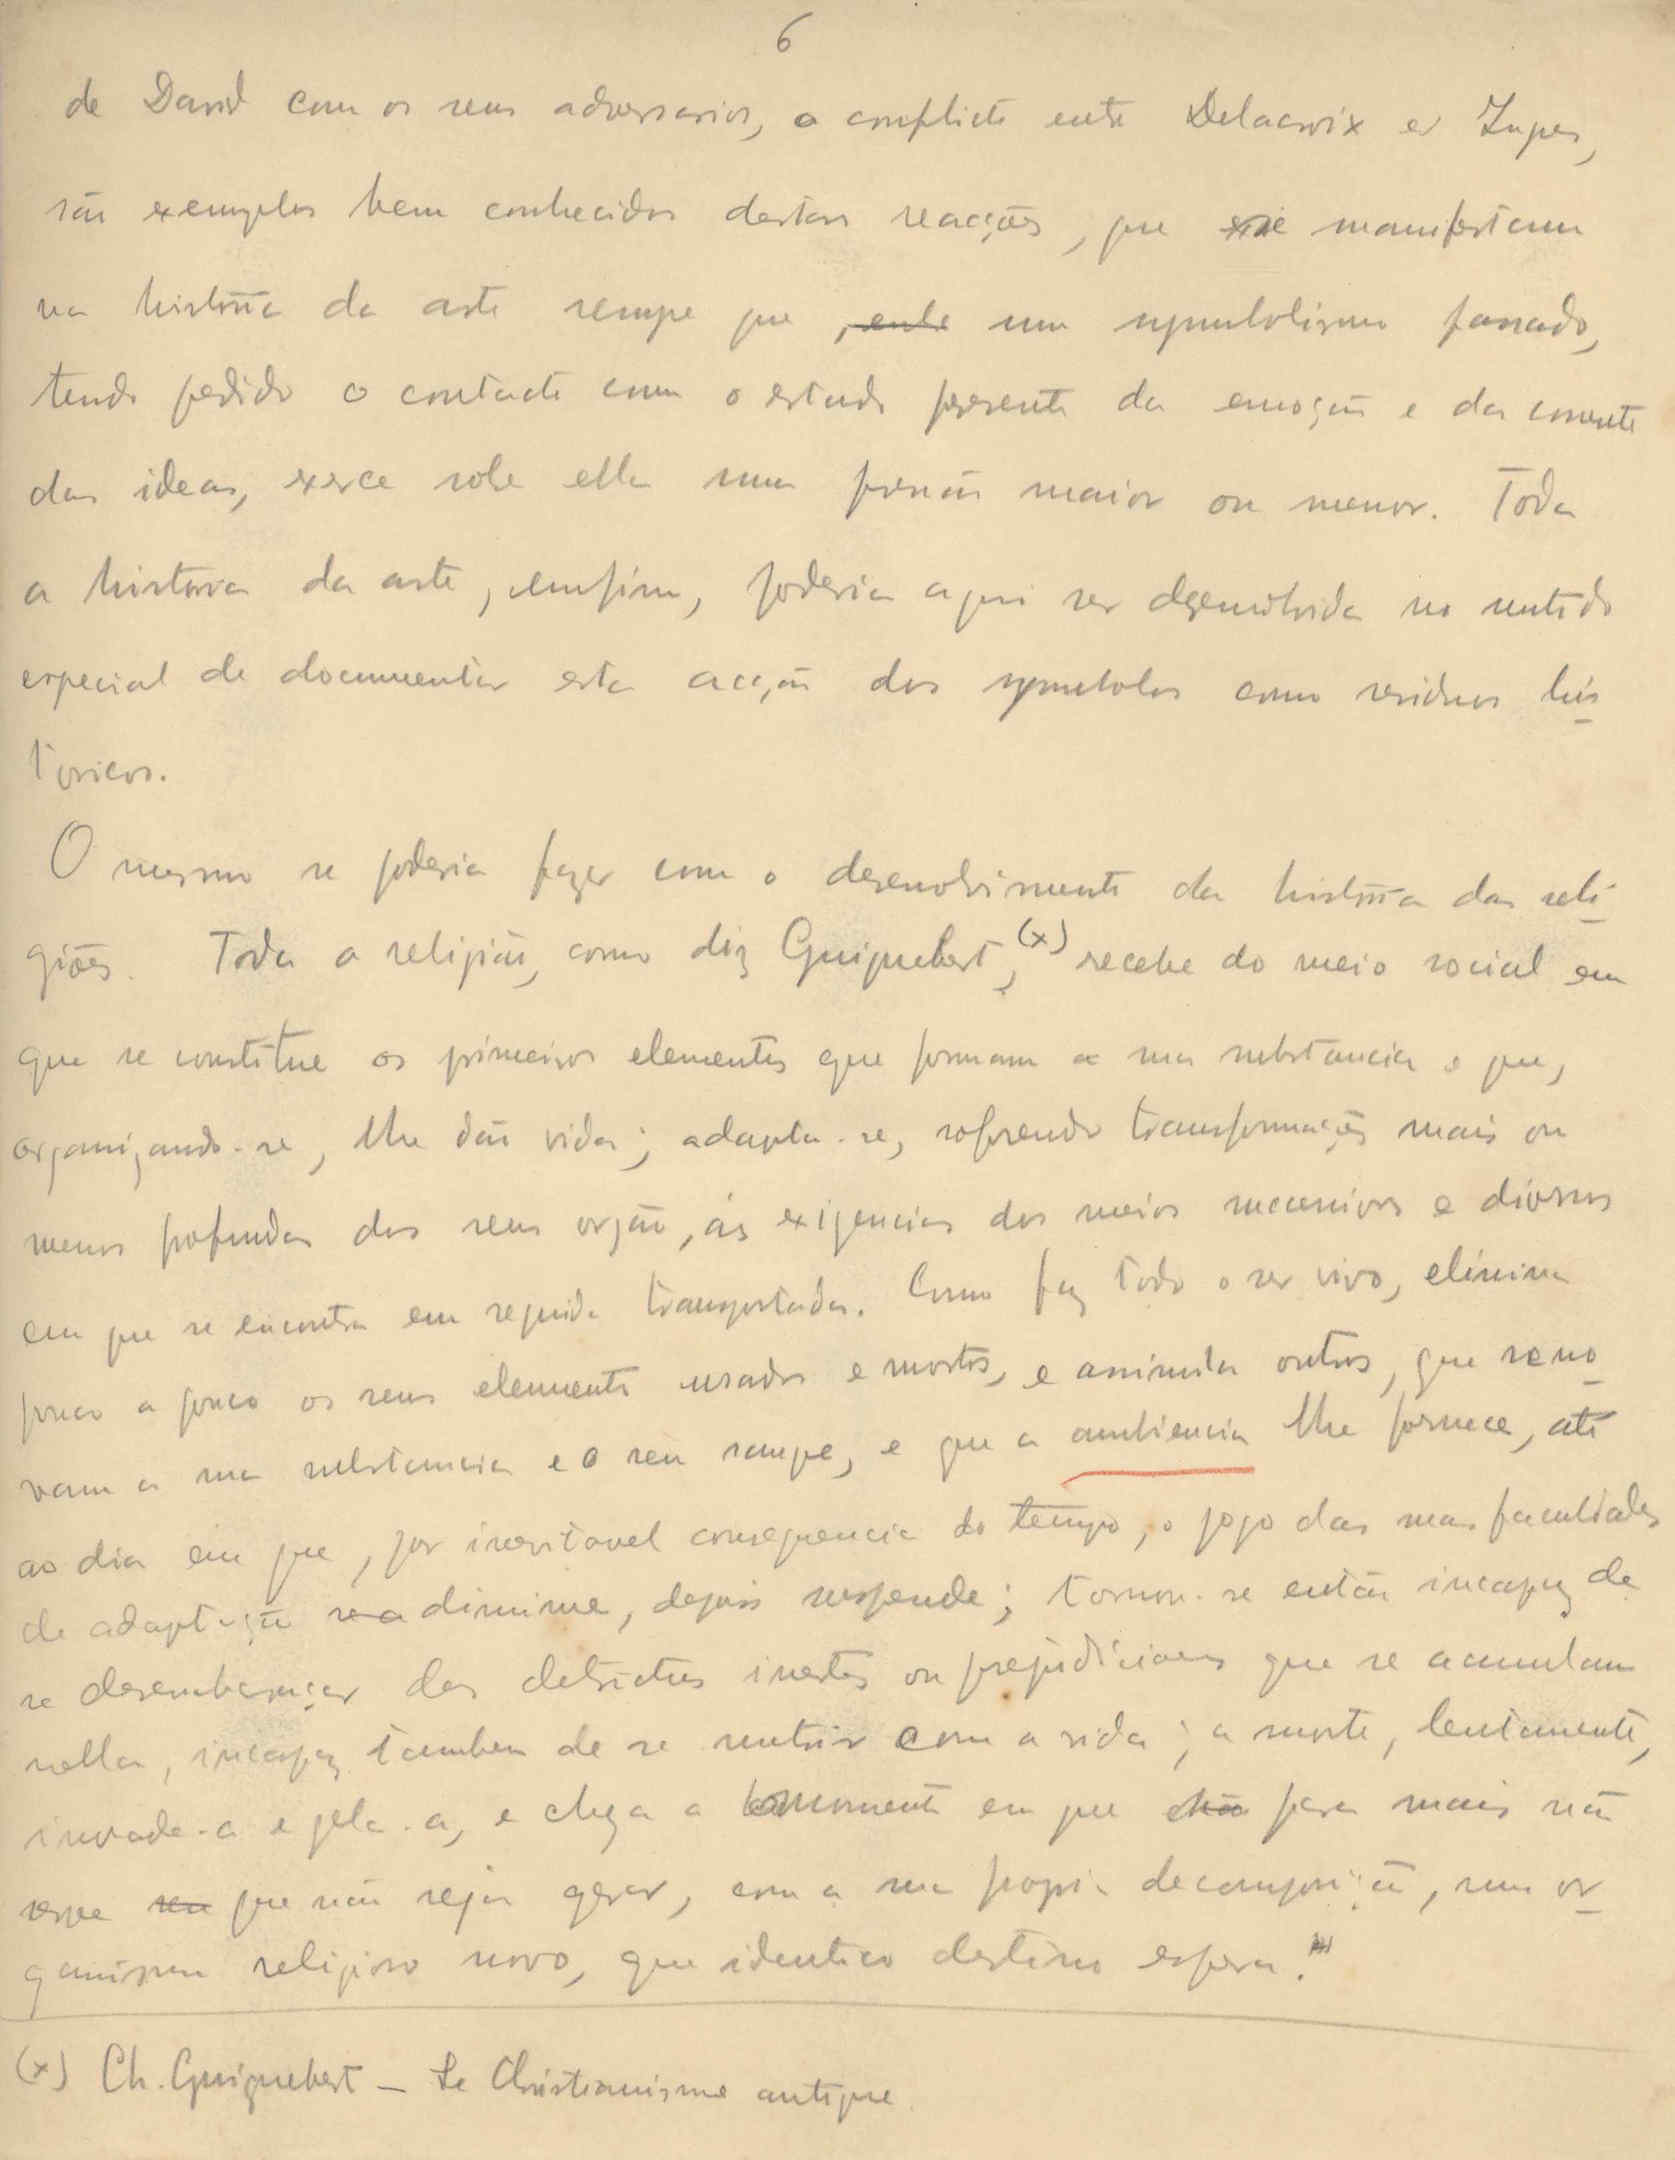 6
de David com os seus adversarios, o conflicto entre Delacroix e Ingres,
são exemplos bem conhecidos destas reacções, que se manifestam
na história da arte sempre que, um symbolismo passado,
tendo perdido o contacto com o estado presente da emoção e da corrente
das ideas, exerce sobre ella uma pressão maior ou menor. Toda
a historia da arte, emfim, poderia aqui ser desenvolvida no sentido
especial de documentar esta acção dos symbolos como residuos his
toricos.
O mesmo se poderia fazer com o desenvolvimento da história das reli
giões. Toda a religião, como diz Guignebert,(x) recebe do meio social em
que se constitue os primeiros elementos que formam a sua substancia e que,
organizando-se, lhe dão vida; adapta-se, soffrendo transformações mais ou
menos profundas dos seus orgãos, ás exigencias dos meios successivos e diversos
em que se encontra em seguida transportada. Como faz todo o ser vivo, elimina
pouco a pouco os seus elementos usados e mortos, e assimila outros, que reno
vam a sua substancia e o seu sangue, e que a ambiencia lhe fornece, até
ao dia em que, por inevitavel consequencia do tempo, o jogo das suas faculdades
de adaptação diminue, depois suspende; torna-se então incapaz de
se desembaraçar dos detrictus inertes ou prejudiciaes que se acumulam
nella, incapaz tambem de se nutrir com a vida; a morte, lentamente,
invade-a e gela-a, e chega o momento em que para mais não
serve que não seja gerar, com a sua propria decomposição, um or
ganismo religioso novo, que identico destino espera."
(x) Ch. Guignebert — Le Christianisme antique